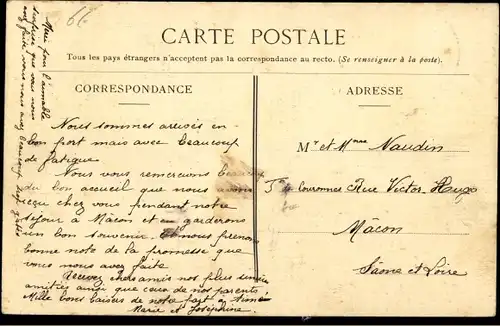 66
CARTE POSTALE
Tous les pays étrangers n'acceptent pas la correspondance au recto. (Se renseigner à la poste.)
CORRESPONDANCE
Nous sommes arrivés en
bon port mais avec beaucoup
de fatigue.
Nous vous remercions beaucoup
du bon accueil que nous avons
reçu chez vous pendant notre
séjour à Mâcon et en garderons
un bon souvenir. Et nous prenons
bonne note de la promesse que
vous nous avez faite
Recevez chers amis nos plus sincères
amitiés ainsi que ceux de nos parents.
Mille bons baisers de notre part à
Marie et Joséphine
Merci pour l'aimable
surprise que vous nous
avez faite vous nous avez beaucoup
ADRESSE
Mr et Mme Naudin
Couronnes Rue Victor-Hugo
Mâcon
Saône et Loire